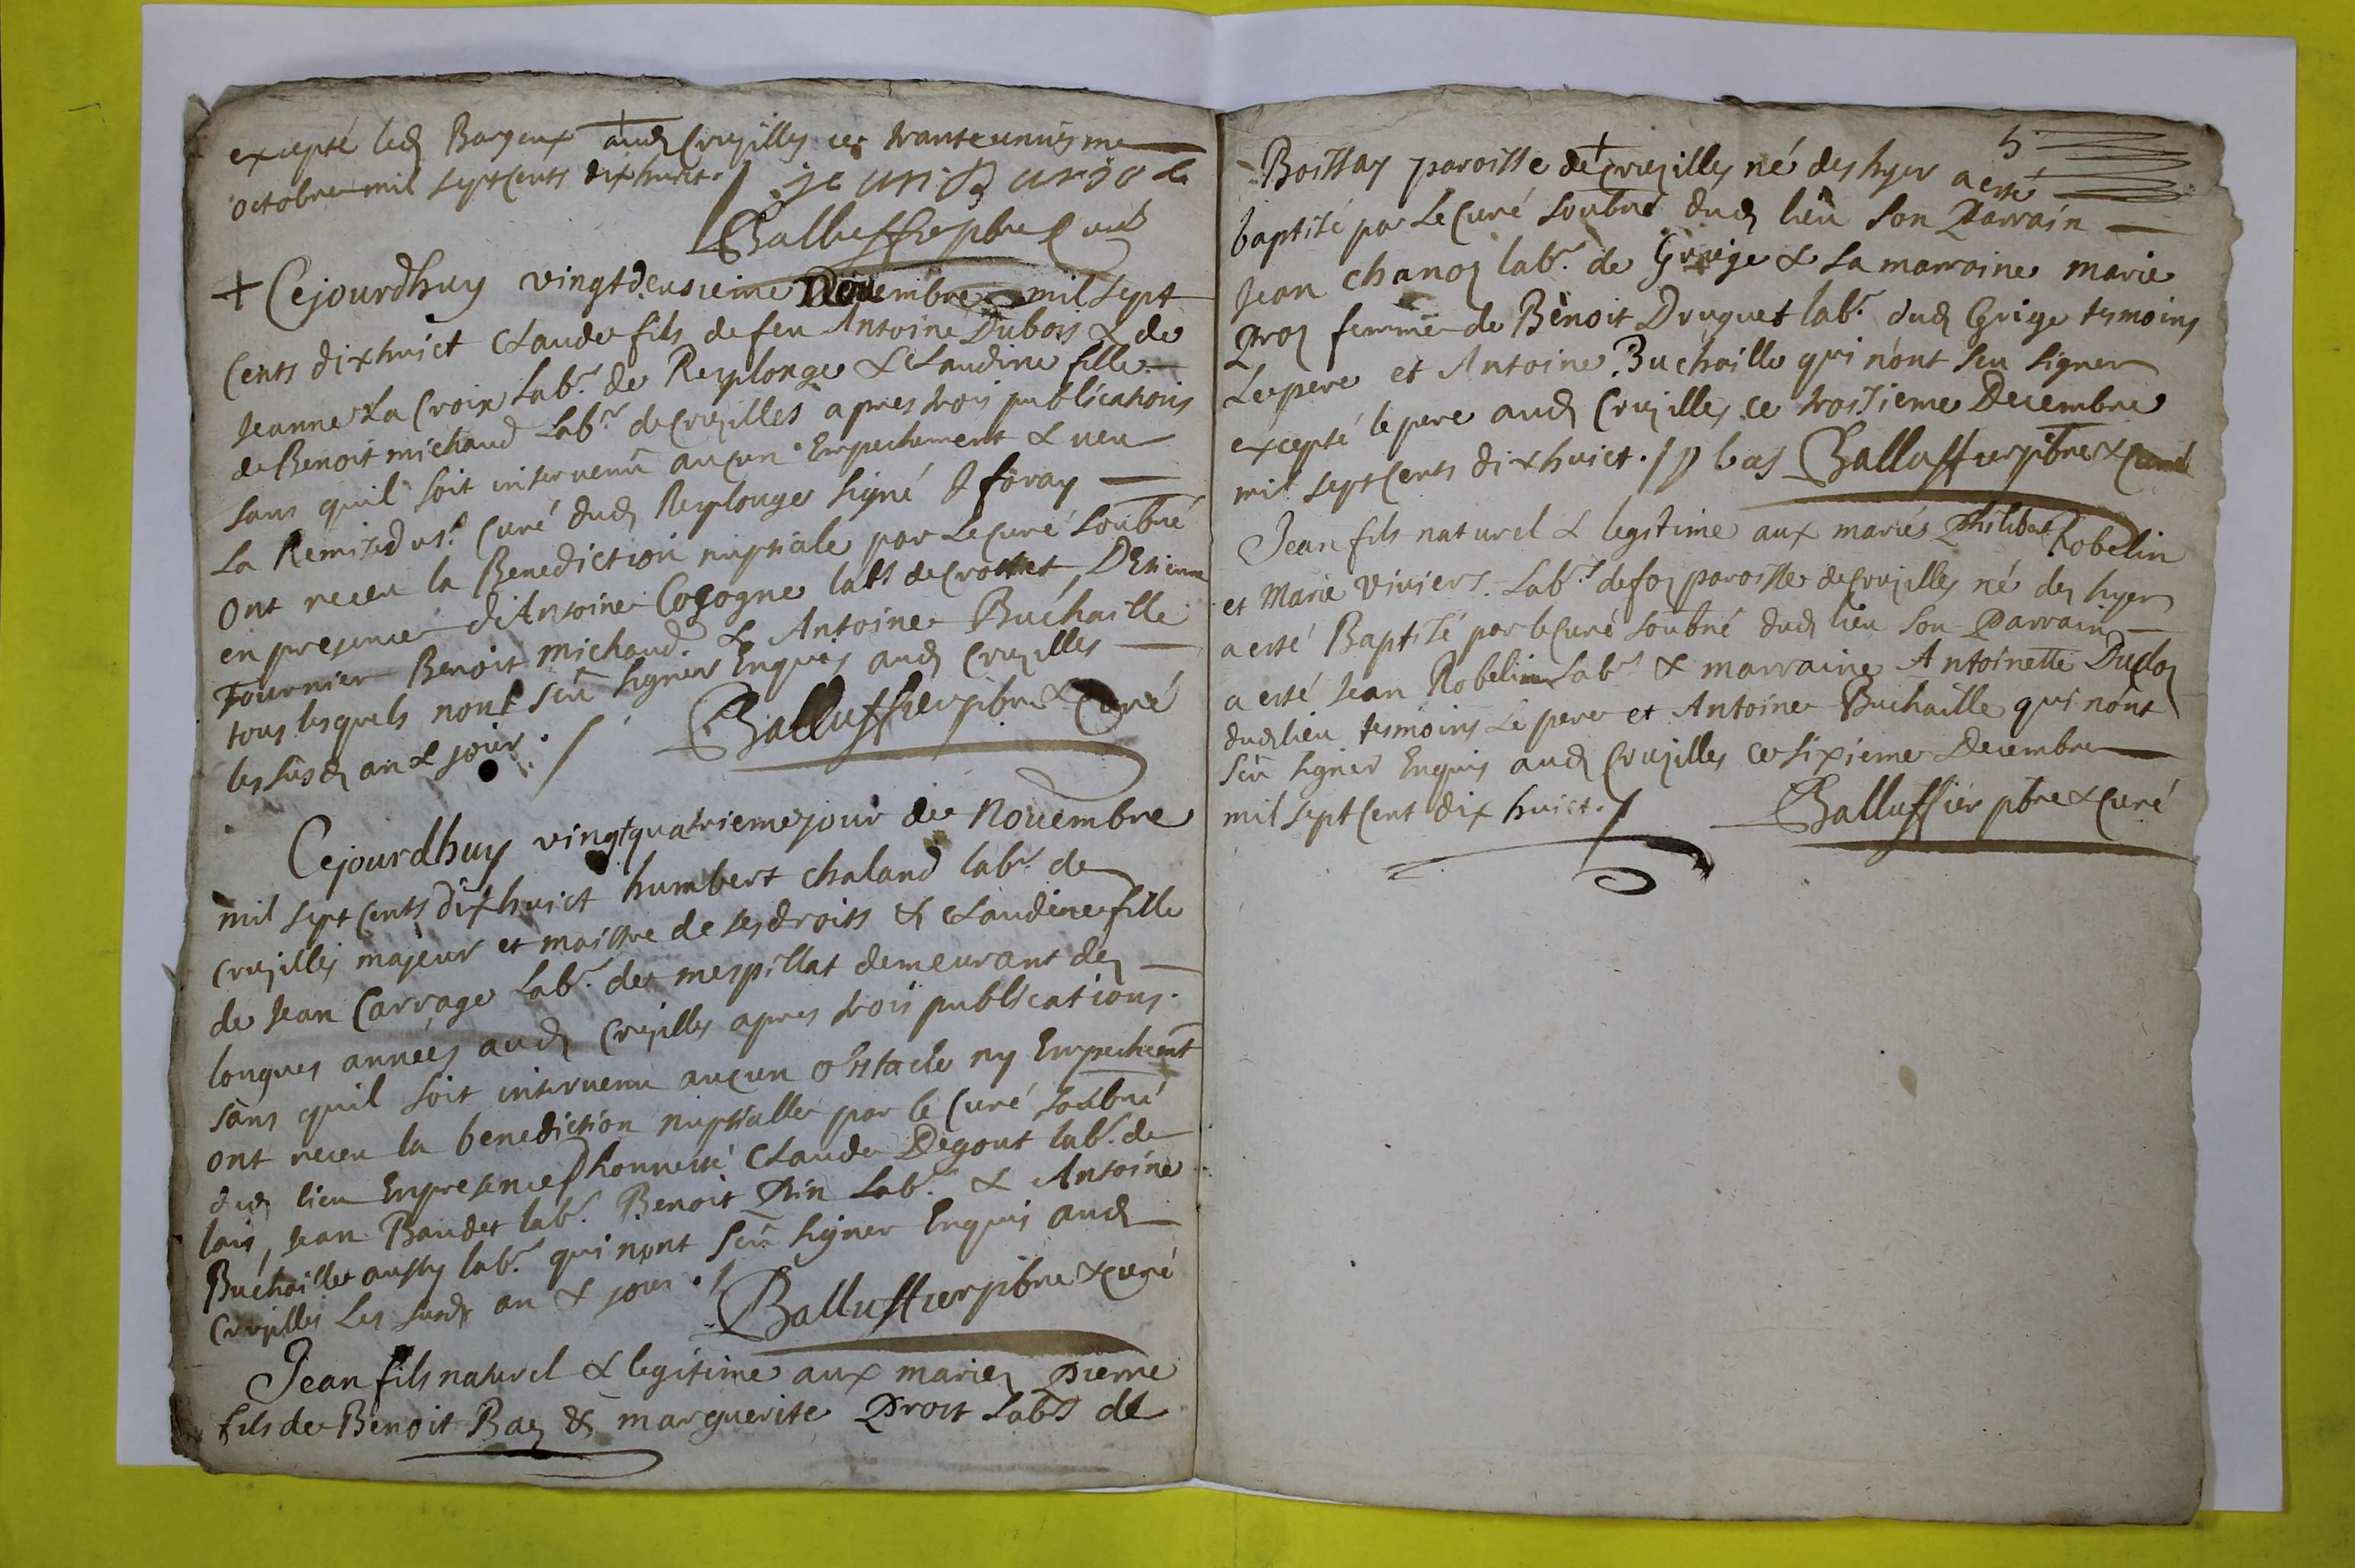 excepté led Barjoux aud Crujilles ce trante unisme
octobre mil sept Cents dixhuict ./. jean Barjo
Balluffier pbre Curé
+ Cejourdhuy vingtdeusieme Novembre mil sept
Cents dixhuict Claude fils de feu Antoine Dubois & de
Jeanne La Croix Labr. de Replonge & Claudine fille
de Benoit michaud Labr de Crujilles apres trois publications
sans quil soit intervenu aucun Empechement & veu
La Remise du sr. Curé dud Replonge signé foray
Ont receu la Benediction nuptiale par Le Curé soubné
en presence dAntoine Cogogne labr de Crottet, DEtienne
Fournier Benoit michaud & Antoine Buchaille
tous lesquels nont sceu signer Enquis aud Crujilles
les susd an & jour ./. Balluffier pbre & Curé
Cejourdhuy vingtquatrieme jour de Novembre
mil sept Cents dixhuict humbert chaland labr. de
Crujilles majeur et maistre de ses droits & Claudine fille
de Jean Carrage Labr. de mespillat demeurant de
longues années aud Crujilles apres trois publications
sans quil soit intervenu aucun obstacle ny Empechemt
ont receu la benediction nuptialle par le Curé soubné
dud lieu En presence Dhonneste Claude Degout labr. de
lais, Jean Baudet labr. Benoit Pin Labr. & Antoine
Buchaille aussy labr. qui nont sceu signer Enquis aud
Crujilles Les susd an & jour ./. Balluffier pbre & Curé
Jean fils naturel & legitime aux mariez Pierre
fils de Benoit Bas & marguerite Prost Labrs de
5
Boissay paroisse de Crujilles né des hyer a esté
baptisé par Le Curé soubné dud lieu son Parrain
Jean chanoz labr. de Griege & La marraine marie
Proz femme de Benoit Druguet labr. dud Grige tesmoins
Le pere et Antoine Buchaille qui n'ont sceu signer
excepté le pere aud Crujilles ce troisieme Decembre
mil sept Cents dixhuict ./. p bas Balluffier pbre & Curé
Jean fils naturel & legitime aux mariés Philibert Robelin
et Marie Viviers Labrs. de foz paroisse de Crujilles né des hyer
a esté Baptisé par le Curé soubné dud lieu son Parrain
a esté Jean Robelin Labr & marraine Antoinette Ducloz
dud lieu tesmoins Le pere et Antoine Buchaille qui n'ont
sceu signer Enquis aud Crujilles ce sixieme Decembre
mil sept Cent dix huict ./. Balluffier pbre & Curé